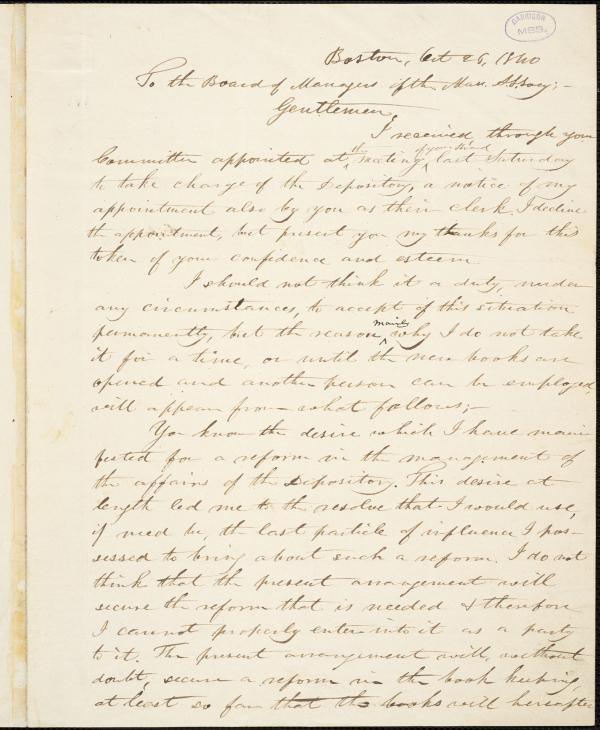 GARRISON
MSS.
Boston, Oct 26, 1840
To the Board of Managers of the Mass. A.S. Socy;–
Gentlemen,
I received through your
Committee appointed at the meeting of your Board last Saturday
to take charge of the Depository, a notice of my
appointment also by you as their clerk. I decline
the appointment, but present you my thanks for this
token of your confidence and esteem.
I should not think it a duty, under
any circumstances, to accept of this situation
permanently, but the reason mainly why I do not take
it for a time, or until the new books are
opened and another person can be employed,
will appear from what follows;–
You know the desire which I have mani-
fested for a reform in the management of
the affairs of the Depository. This desire at
length led me to the resolve that I would use,
if need be, the last particle of influence I pos-
sessed to bring about such a reform. I do not
think that the present arrangement will
secure the reform that is needed & therefore
I cannot properly enter into it as a party
to it. The present arrangement will, without
doubt, secure a reform in the book keeping,
at least so far that the books will hereafter